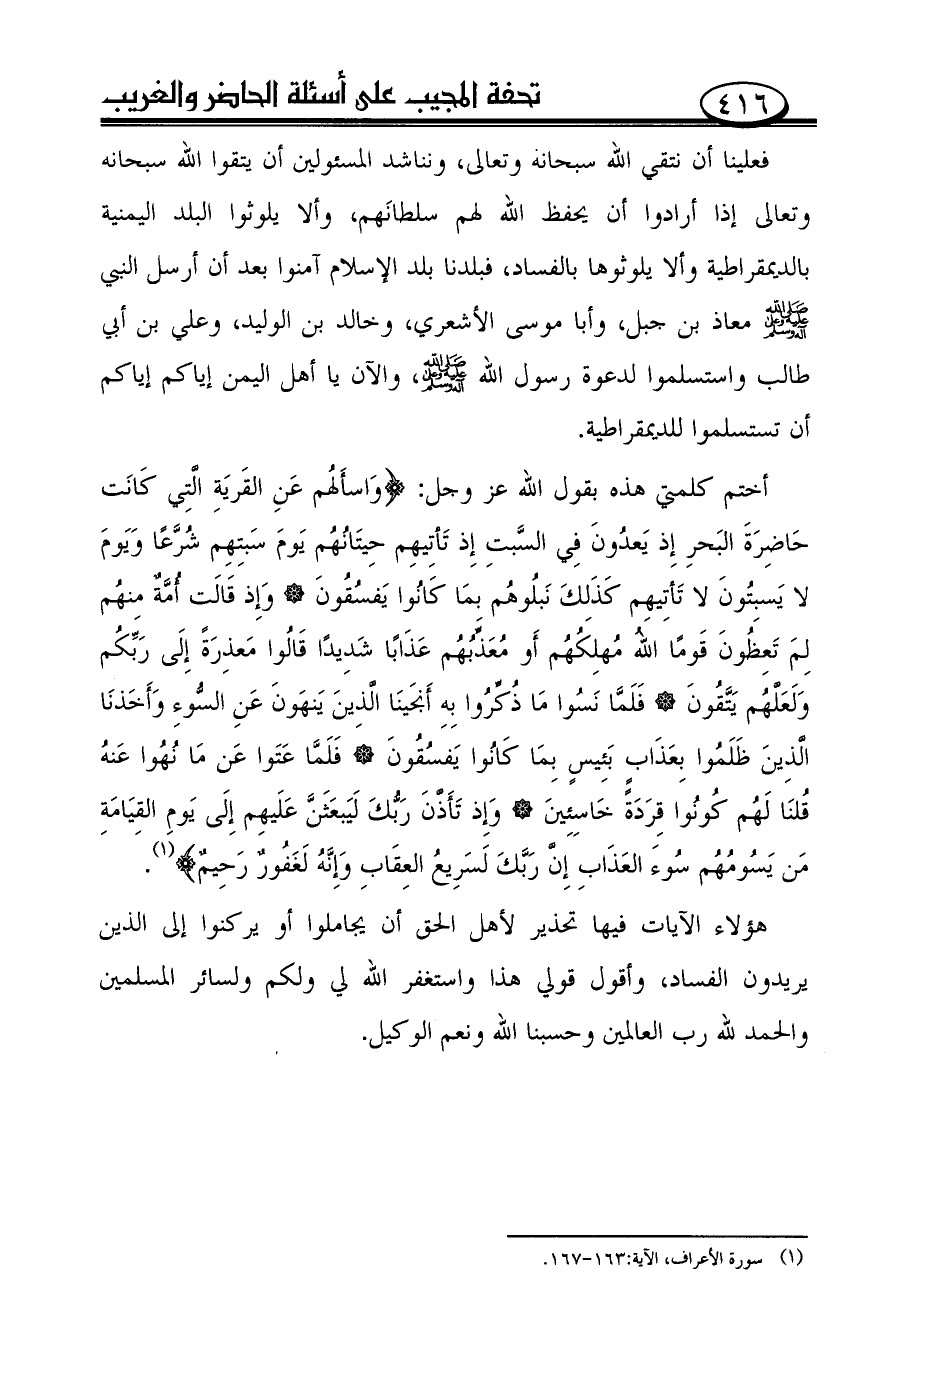 ٤١٦ تحفة المجيب على أسئلة الحاضر والغريب
فعلينا أن نتقي الله سبحانه وتعالى، ونناشد المسئولين أن يتقوا الله سبحانه
وتعالى إذا أرادوا أن يحفظ الله لهم سلطانَهم، وألا يلوثوا البلد اليمنية
بالديمقراطية وألا يلوثوها بالفساد، فبلدنا بلد الإسلام آمنوا بعد أن أرسل النبي
ﷺ معاذ بن جبل، وأبا موسى الأشعري، وخالد بن الوليد، وعلي بن أبي
طالب واستسلموا لدعوة رسول الله ﷺ، والآن يا أهل اليمن إياكم إياكم
أن تستسلموا للديمقراطية.
أختم كلمتي هذه بقول الله عز وجل: ﴿وَاسأَلهُم عَنِ القَريَةِ الَّتِي كَانَت
حَاضِرَةَ البَحرِ إِذ يَعدُونَ فِي السَّبتِ إِذ تَأتِيهِم حِيتَانُهُم يَومَ سَبتِهِم شُرَّعًا وَيَومَ
لا يَسبِتُونَ لا تَأتِيهِم كَذَلِكَ نَبلُوهُم بِمَا كَانُوا يَفسُقُونَ ۞ وَإِذ قَالَت أُمَّةٌ مِنهُم
لِمَ تَعِظُونَ قَومًا اللهُ مُهلِكُهُم أَو مُعَذِّبُهُم عَذَابًا شَدِيدًا قَالُوا مَعذِرَةً إِلَى رَبِّكُم
وَلَعَلَّهُم يَتَّقُونَ ۞ فَلَمَّا نَسُوا مَا ذُكِّرُوا بِهِ أَنجَينَا الَّذِينَ يَنهَونَ عَنِ السُّوءِ وَأَخَذنَا
الَّذِينَ ظَلَمُوا بِعَذَابٍ بَئِيسٍ بِمَا كَانُوا يَفسُقُونَ ۞ فَلَمَّا عَتَوا عَن مَا نُهُوا عَنهُ
قُلنَا لَهُم كُونُوا قِرَدَةً خَاسِئِينَ ۞ وَإِذ تَأَذَّنَ رَبُّكَ لَيَبعَثَنَّ عَلَيهِم إِلَى يَومِ القِيَامَةِ
مَن يَسُومُهُم سُوءَ العَذَابِ إِنَّ رَبَّكَ لَسَرِيعُ العِقَابِ وَإِنَّهُ لَغَفُورٌ رَحِيمٌ﴾(١).
هؤلاء الآيات فيها تحذير لأهل الحق أن يجاملوا أو يركنوا إلى الذين
يريدون الفساد، وأقول قولي هذا واستغفر الله لي ولكم ولسائر المسلمين
والحمد لله رب العالمين وحسبنا الله ونعم الوكيل.
(١) سورة الأعراف، الآية:١٦٣-١٦٧.